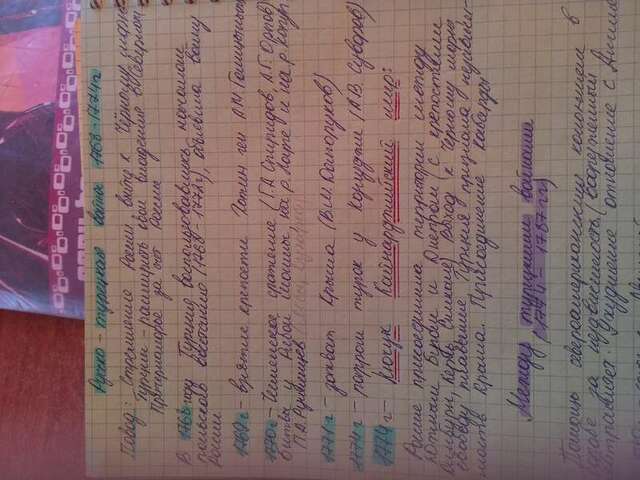 Русско-турецкая война 1768-1774г
Повод: Стремление России выйти к Чёрному морю
Турции - расширить свои владения в Северном
Причерноморье за счёт России
В 1768 году Турция воспользовавшись началом
польского восстания (1768-1772г), объявила войну
России
1769г - взятие крепости Хотин ген А.М. Голицыным
1770г - Чесменское сражение (Г.А. Спиридов, А.Г. Орлов)
битвы у Рябой Могилы, на р. Ларге и на р. Кагул
П.А. Румянцев
1771г - захват Крыма (В.М. Долгоруков)
1774г - разгром турок у Козлуджи (А.В. Суворов)
1774г - Кючук Кайнарджийский мир:
Россия присоединила территории между
Южным Бугом и Днепром с крепостями
Кинбурн, право выход к Чёрному морю
свободу плавания. Турция признала независи-
мость Крыма. Присоединение Кабарды
Между турецкими войнами
(1774 - 1787гг)
Помощь североамериканским колониям в
за независимость (вооруженный
нейтралитет). Ухудшение отношений с Англией